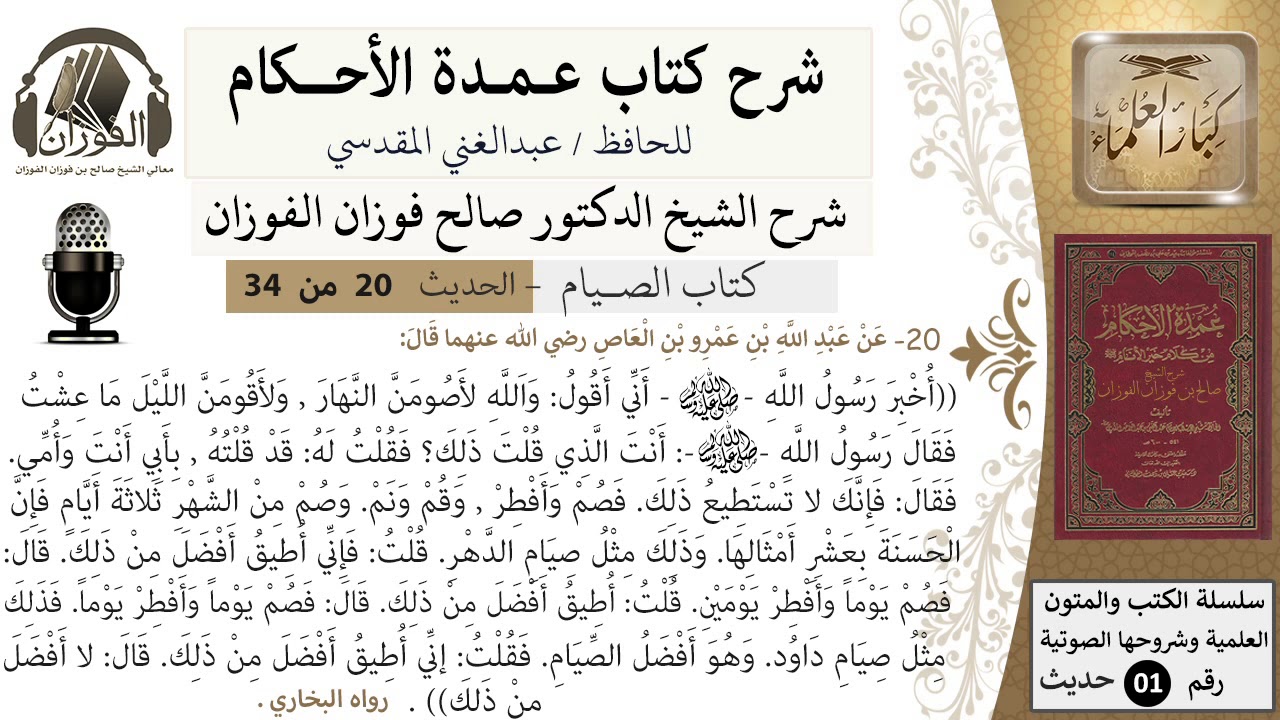 شرح كتاب عمدة الأحكام
للحافظ / عبدالغني المقدسي
شرح الشيخ الدكتور صالح فوزان الفوزان
كتاب الصيام – الحديث 20 من 34
20- عَنْ عَبْدِ اللَّهِ بْنِ عَمْرِو بْنِ الْعَاصِ رضي الله عنهما قَالَ:
((أُخْبِرَ رَسُولُ اللَّهِ -ﷺ- أَنِّي أَقُولُ: وَاَللَّهِ لأَصُومَنَّ النَّهَارَ , وَلأَقُومَنَّ اللَّيْلَ مَا عِشْتُ
فَقَالَ رَسُولُ اللَّه -ﷺ-: أَنْتَ الَّذِي قُلْتَ ذَلِكَ؟ فَقُلْتُ لَهُ: قَدْ قُلْتُهُ , بِأَبِي أَنْتَ وَأُمِّي.
فَقَالَ: فَإِنَّكَ لا تَسْتَطِيعُ ذَلِكَ. فَصُمْ وَأَفْطِرْ , وَقُم وَنَمْ. وَصُمْ مِنْ الشَّهْرِ ثَلاثَةَ أَيَّامٍ فَإِنَّ
الْحَسَنَةَ بِعَشْرِ أَمْثَالِهَا. وَذَلِكَ مِثْلُ صِيَامِ الدَّهْرِ. قُلْتُ: فَإِنِّي أُطِيقُ أَفْضَلَ مِنْ ذَلِكَ. قَالَ:
فَصُمْ يَوْماً وَأَفْطِرْ يَوْمَيْنِ. قُلْتُ: أُطِيقُ أَفْضَلَ مِنْ ذَلِكَ. قَالَ: فَصُمْ يَوْماً وَأَفْطِرْ يَوْماً. فَذَلِكَ
مِثْلُ صِيَامِ دَاوُد. وَهُوَ أَفْضَلُ الصِّيَامِ. فَقُلْتُ: إنِّي أُطِيقُ أَفْضَلَ مِنْ ذَلِكَ. قَالَ: لا أَفْضَلَ
مِنْ ذَلِكَ)) . رواه البخاري .
الفوزان
معالي الشيخ صالح بن فوزان الفوزان
كبار العلماء
عُمْدَةُ الأَحْكَام
مِنْ كَلَامِ خَيْرِ الأَنَامِ ﷺ
شرح الشيخ
صالح بن فوزان الفوزان
تأليف
سلسلة الكتب والمتون
العلمية وشروحها الصوتية
رقم 01 حديث